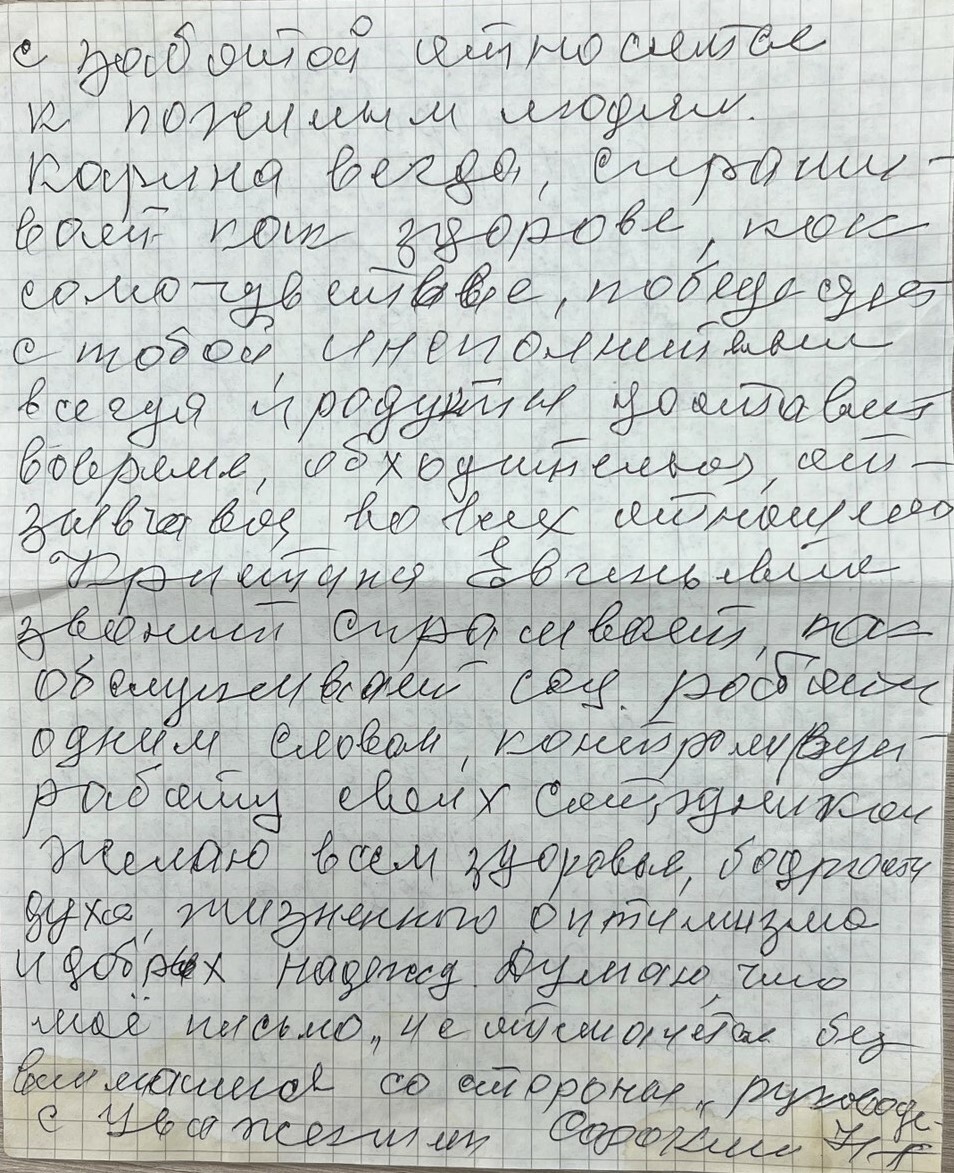 с заботой относится
к пожилым людям.
Карина всегда, спраши-
вает как здорове, как
самочувствие, победует
с тобой, и неполнительная
всегда продукты доставит
вовремя, обходительна, от-
зывчивая во всех отношено
Кристина Евгеньевна
звонит спрашивает, как
обслуживает соц. работн
одним словом, контролирует
работу своих сотрудников
Желаю всем здоровья, бодрости
духа, жизненного оптимизма
и добрых надежд. Думаю, что
моё письмо, не останется без
внимания со стороны, руковод-
с Уважением Сорокин